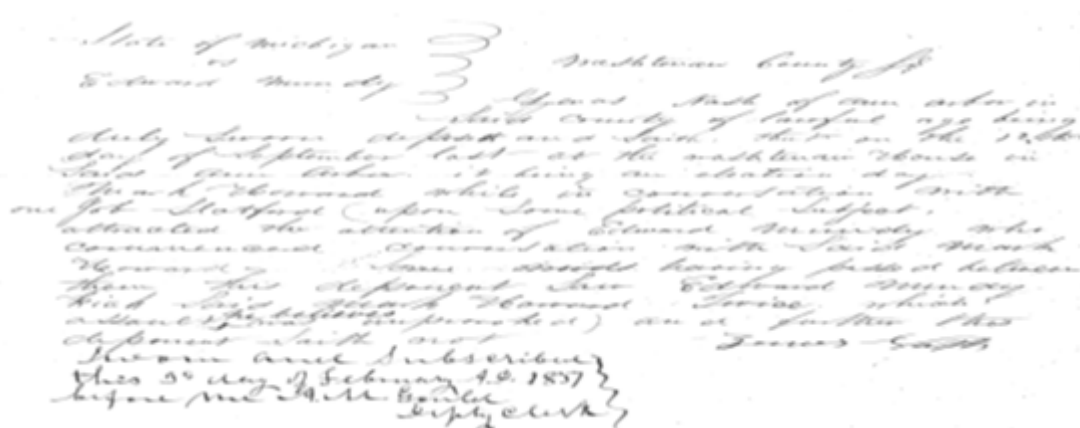 State of Michigan
vs
Edward Mundy
Washtenaw County Ss
Nash of ann arbor in
Said County of lawful age being
duly Sworn deposeth and Saith that on the 12th
day of September last at the washtenaw House in
Said Ann Arbor it being an election day
Mark Howard while in conversation with
one Job Slatford (upon Some political Subject,
attracted the attention of Edward Mundy who
commenced conversation with Said Mark
Howard Some words having passed between
them this deponent Saw Edward Mundy
kick Said Mark Howard twice which
assault he believes was unprovoked) and further this
deponent Saith not
Sworn and Subscribed
this 3d day of February A.D. 1837
before me Gould
Depty Clerk